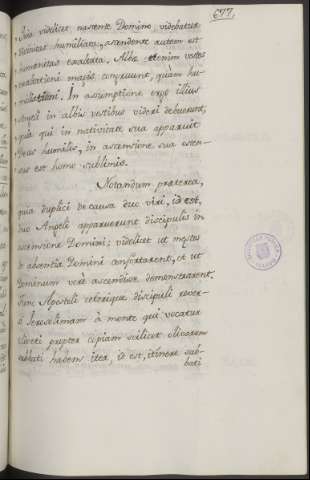 677.
Quia videlicet nascente Domino, videbatur
Divinitas humiliata, ascendente autem est
humanitas exaltata. Albæ etenim vestes
exaltationi magis congruunt, quàm hu-
miliationi. In assumptione ergo illius
Angeli in albis vestibus videri debuerunt,
quia qui in nativitate sua apparuit
Deus humilis, in ascensione sua osten-
sus est homo sublimis.
Notandum præterea,
quia duplici de causa duo viri, id est,
duo Angeli apparuerunt discipulis in
ascensione Domini; videlicet ut mæstos
de absentia Domini confortarent, et ut
Dominum verè ascendisse demonstrarent.
Tunc Apostoli ceterique discipuli rever-
si Jerosolimam à monte qui vocatur
Oliveti propter copiam scilicet olivarum
sabbati habens iter, id est, itinere sab-
bati